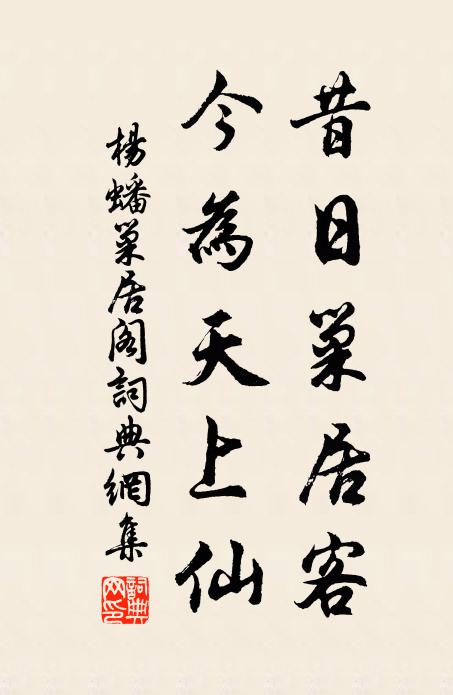 昔日巢居客
今為天上仙
楊蟠巢居閣詞典網集
詞典网印